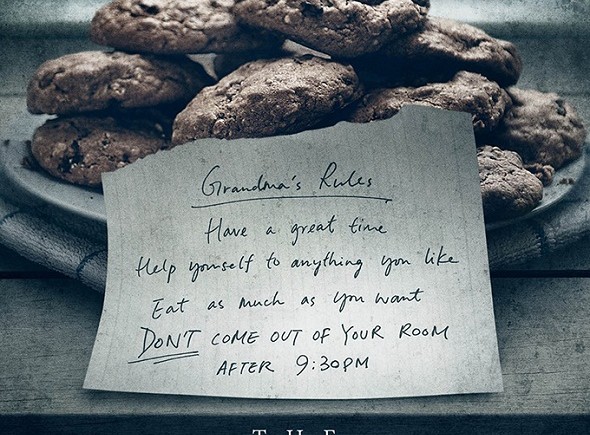 Grandma's Rules
Have a great time
Help yourself to anything you like
Eat as much as you want
DON'T COME OUT OF YOUR ROOM
AFTER 9:30PM
THE